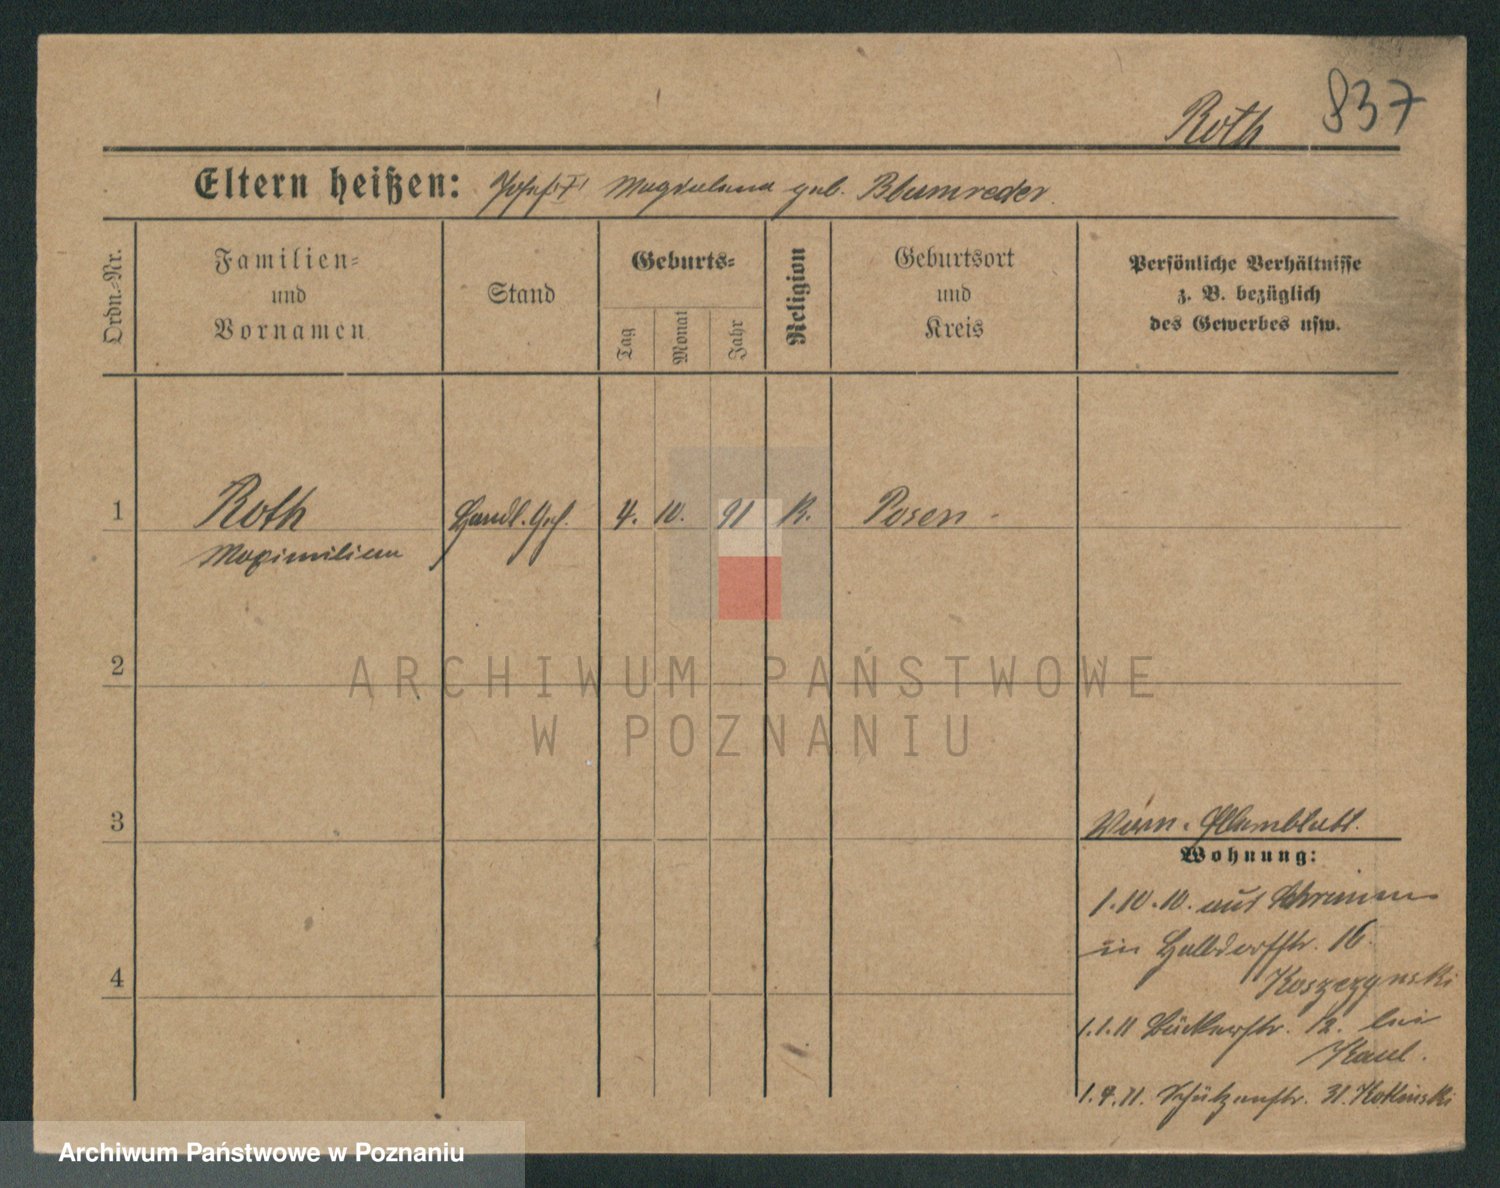 Roth 837
Eltern heißen: Josef † Magdalena geb. Blumreder
Ordn.-Nr.
Familien-
und
Vornamen
Stand
Geburts-
Tag
Monat
Jahr
Religion
Geburtsort
und
Kreis
Persönliche Verhältnisse
z. B. bezüglich
des Gewerbes usw.
1 Roth Handl. Geh. 4. 10. 91 K. Posen
Maximilian
2
ARCHIWUM PAŃSTWOWE
W POZNANIU
3
Stammblatt.
Wohnung:
1.10.10. aus Schrimm
in Halbdorfstr. 16
Koszczynski
4
1.1.11 Bäckerstr. 12. bei
Kaul.
1.4.11. Schützenstr. 31. Kotlinski
Archiwum Państwowe w Poznaniu